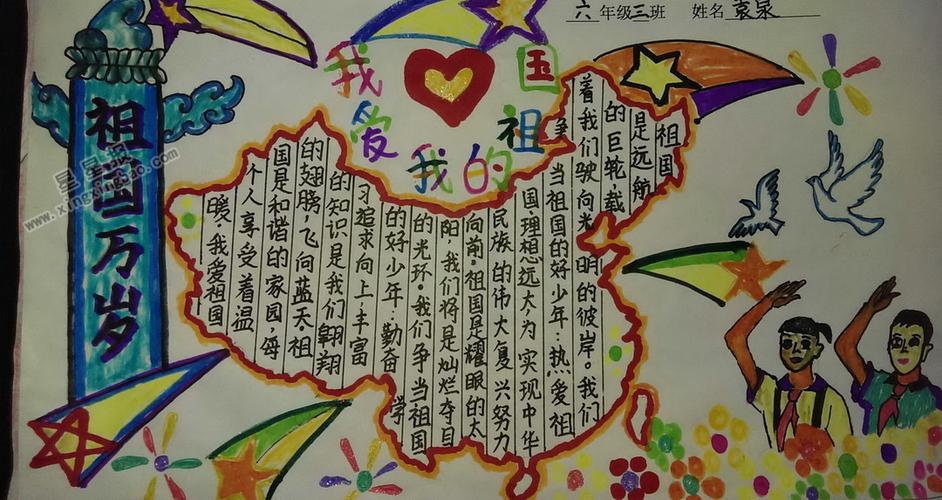 六年级三班 姓名 袁泉
我爱我的祖国
祖国万岁
祖国
是远航
的巨轮,载
着我们驶向光明的彼岸。我们
争当祖国的好少年:热爱祖
国理想远大,为实现中华
民族的伟大复兴努力
向前。祖国是耀眼的太
阳,我们将是灿烂夺目
的光环。我们争当祖国
的好少年:勤奋学
习追求向上丰富
的知识是我们翱翔
的翅膀,飞向蓝天。祖
国是和谐的家园,每
个人享受着温
暖。我爱祖国
星星报
www.xingxingbao.com